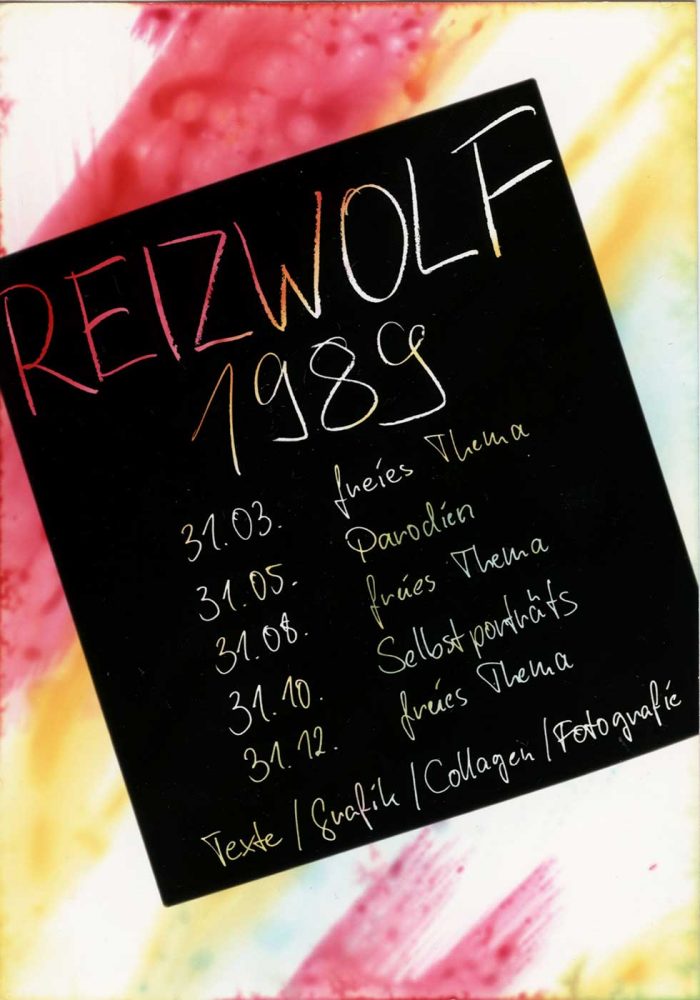 REIZWOLF
1989
31.03. freies Thema
31.05. Parodien
31.08. freies Thema
31.10. Selbstporträts
31.12. freies Thema
Texte / Grafik / Collagen / Fotografie